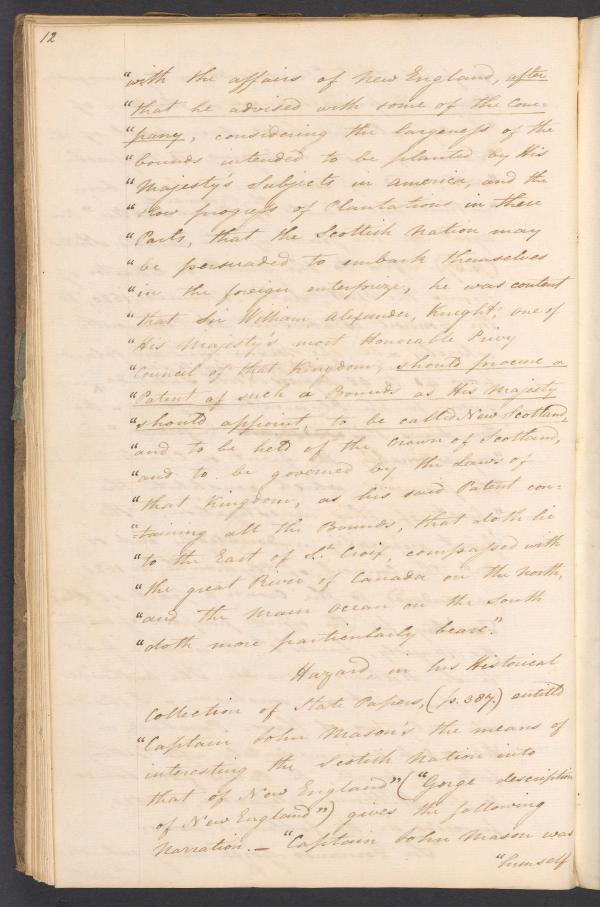 12
"with the affairs of New England, after
"that he advised with some of the Com-
"pany, considering the largeness of the
"bounds intended to be planted by His
"Majesty's Subjects in America, and the
"slow progress of Plantations in these
"Parts, that the Scottish Nation may
"be persuaded to embark themselves
"in the foreign enterprize, he was content
"that Sir William Alexander, Knight, one of
"His Majesty's most Honorable Privy
"Council of that Kingdom, should procure a
"Patent of such a Bounds as His Majesty
"should appoint, to be called New Scotland,
"and to be held of the Crown of Scotland,
"and to be governed by the Laws of
"that Kingdom, as his said Patent con=
"=taining all the Bounds, that doth lie
"to the East of St. Croix, compassed with
"the great River of Canada on the North,
"and the Main Ocean on the South
"doth more particularly beare."
Hazard, in his Historical
Collection of State Papers, (p. 387.) entitled
"Captain John Mason's the means of
interesting the Scotish Nation into
that of New England" ("Gorge description
of New England") gives the following
Narration. — "Captain John Mason was
"himself